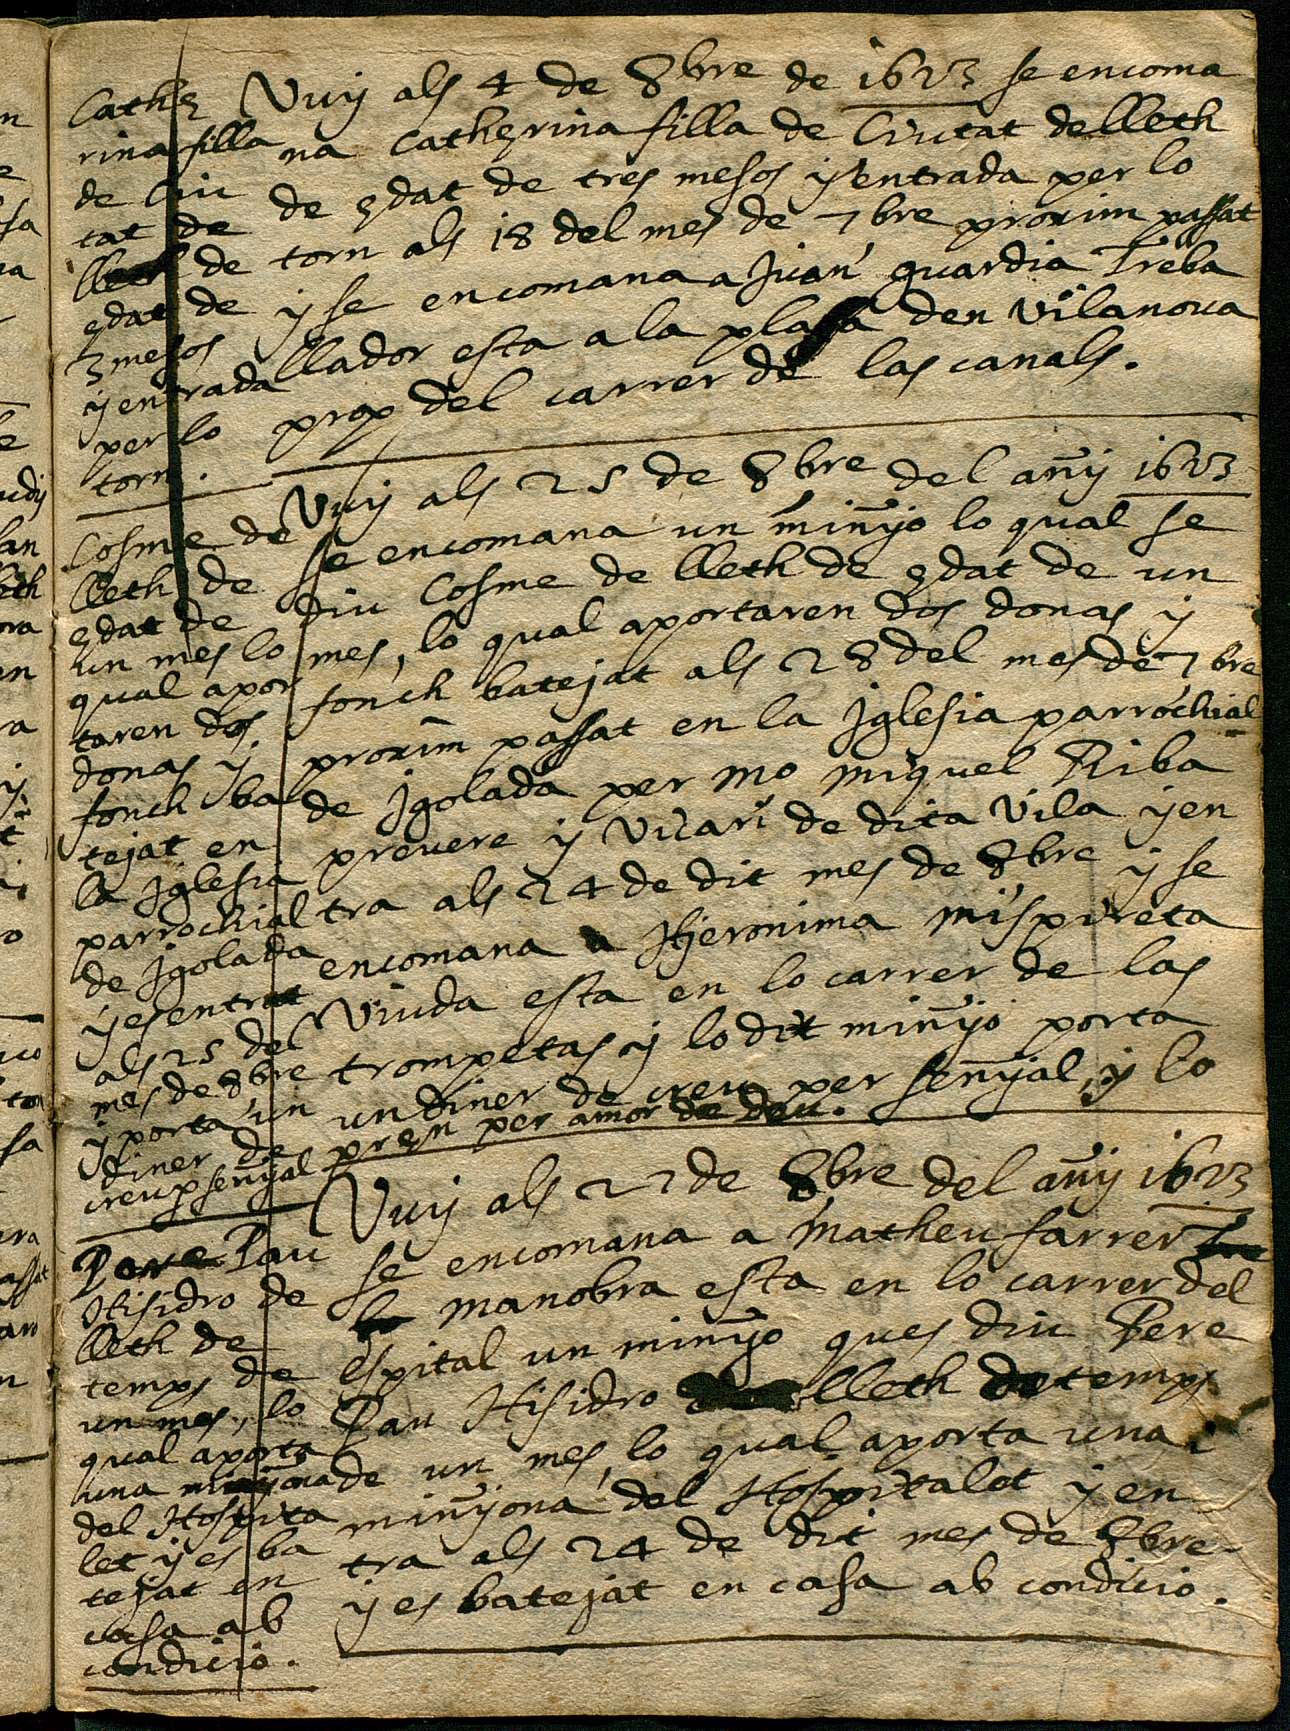 Cathe
rina filla
de Ciu
tat de
lleth
edat de
3 mesos
y entrada
per lo
torn.
Vuy als 4 de 8bre de 1623 se encoma
na Catherina filla de Ciutat de lleth
de edat de tres mesos y entrada per lo
torn als 18 del mes de 7bre proxim passat
y se encomana a Juan guardia Treba
llador esta a la plassa den Vilanova
prop del carrer de las canals.
Cosme de
lleth de
edat de
un mes lo
qual apor
taren dos
donas y
fonch ba
tejat en
la Jglesia
parrochial
de Jgolada
y es entrat
als 25 del
mes de 8bre
y porta un
diner de
creu p senyal
Vuy als 25 de 8bre del any 1623
se encomana un minyo lo qual se
diu Cosme de lleth de edat de un
mes, lo qual aportaren dos donas y
fonch batejat als 28 del mes de 7bre
proxim passat en la Jglesia parrochial
de Jgolada per mo miquel Riba
prevere y Vicari de dita Vila y en
tra als 24 de dit mes de 8bre y se
encomana a Hjeronima mispireta
Viuda esta en lo carrer de las
trompetas y lo dit minyo porta
un diner de creu per senyal, y lo
pren per amor de Deu.
Pere Pau
Hisidro de
lleth de
temps de
un mes, lo
qual aporta
una minyona
del Hospita
let y es ba
tejat en
casa ab
condicio.
Vuy als 27 de 8bre del any 1623
se encomana a Matheu farrer
manobra esta en lo carrer del
espital un minyo ques diu Pere
Pau Hisidro lleth de temps
de un mes, lo qual aporta una
minyona del Hospitalet y en
tra als 24 de dit mes de 8bre
y es batejat en casa ab condicio.